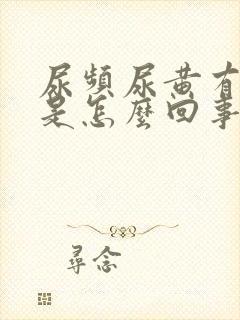 尿頻尿黃有
是怎麼回事
尋念